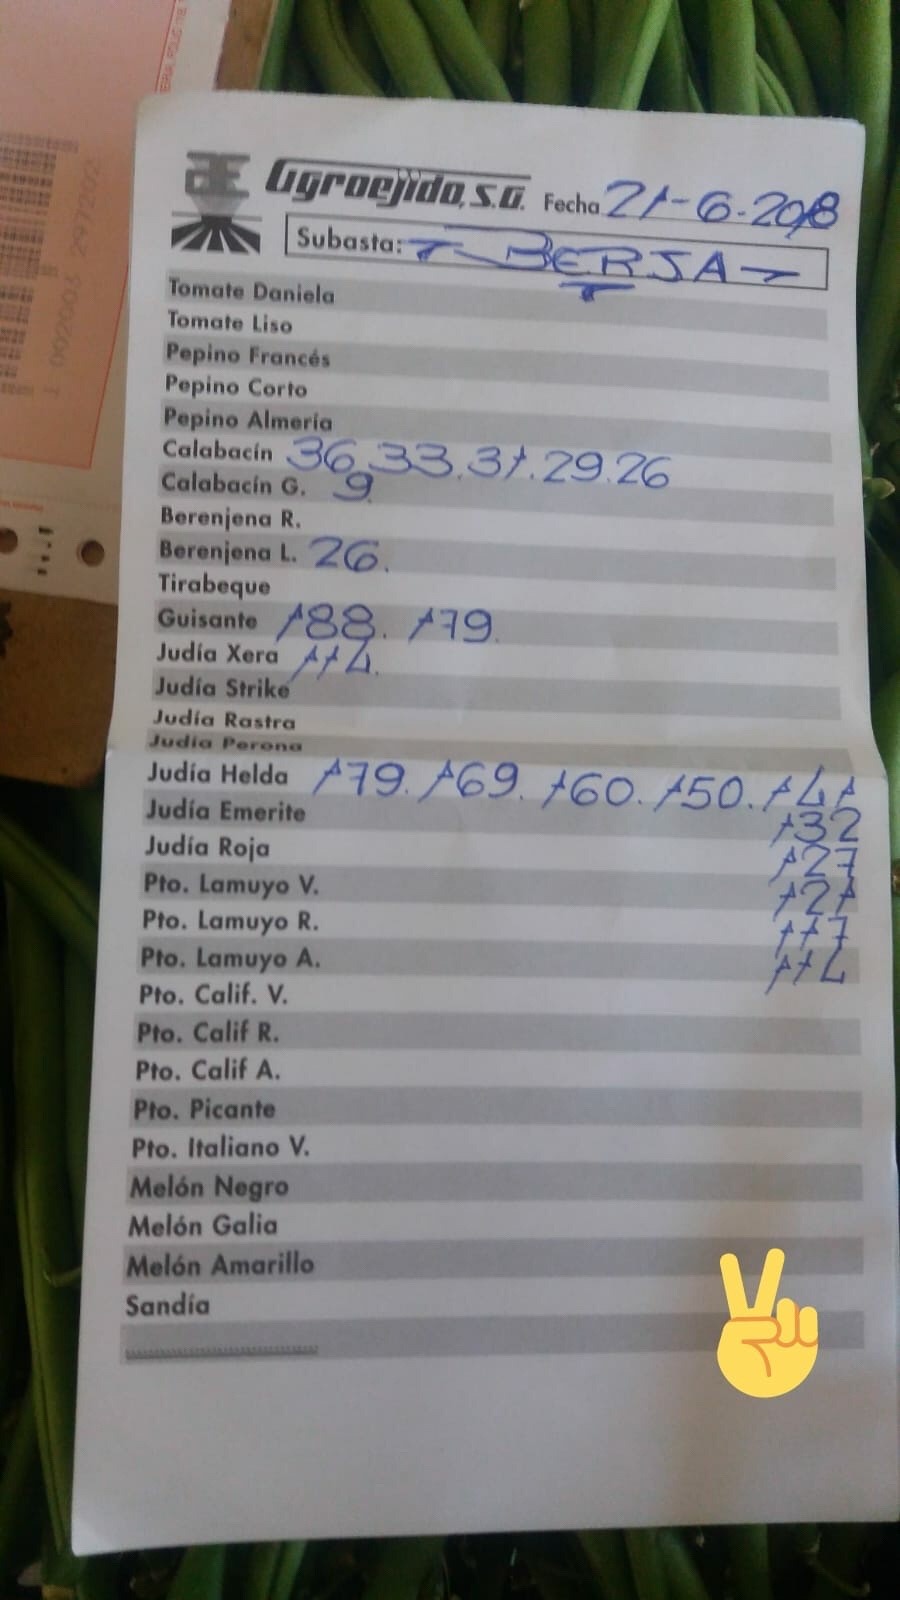 Agroejido, S.A. Fecha 21-6-2018
Subasta: BERJA
Tomate Daniela
Tomate Liso
Pepino Francés
Pepino Corto
Pepino Almería
Calabacín 36.33.31.29.26
Calabacín G. 9
Berenjena R.
Berenjena L. 26.
Tirabeque
Guisante 188. 179.
Judía Xera 114.
Judía Strike
Judía Rastra
Judía Perona
Judía Helda 179. 169. 160. 150. 141
Judía Emerite 132
Judía Roja 127
Pto. Lamuyo V. 121
Pto. Lamuyo R. 117
Pto. Lamuyo A. 114
Pto. Calif. V.
Pto. Calif R.
Pto. Calif A.
Pto. Picante
Pto. Italiano V.
Melón Negro
Melón Galia
Melón Amarillo
Sandía